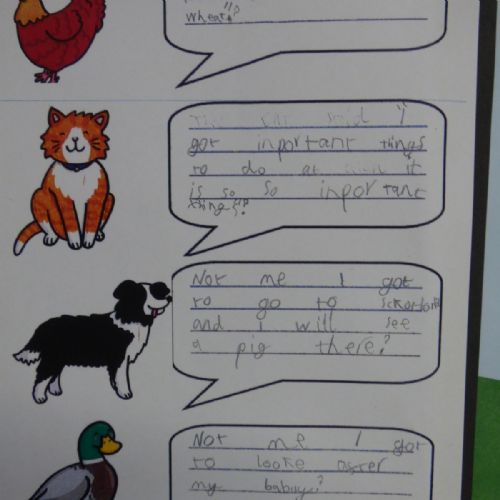 wheat"?
The cat said "I
got inportant things
to do at it
is so so inportant
things"?
Not me I got
to go to
and I will see
a pig there?
Not me I got
to looke
my babuys?